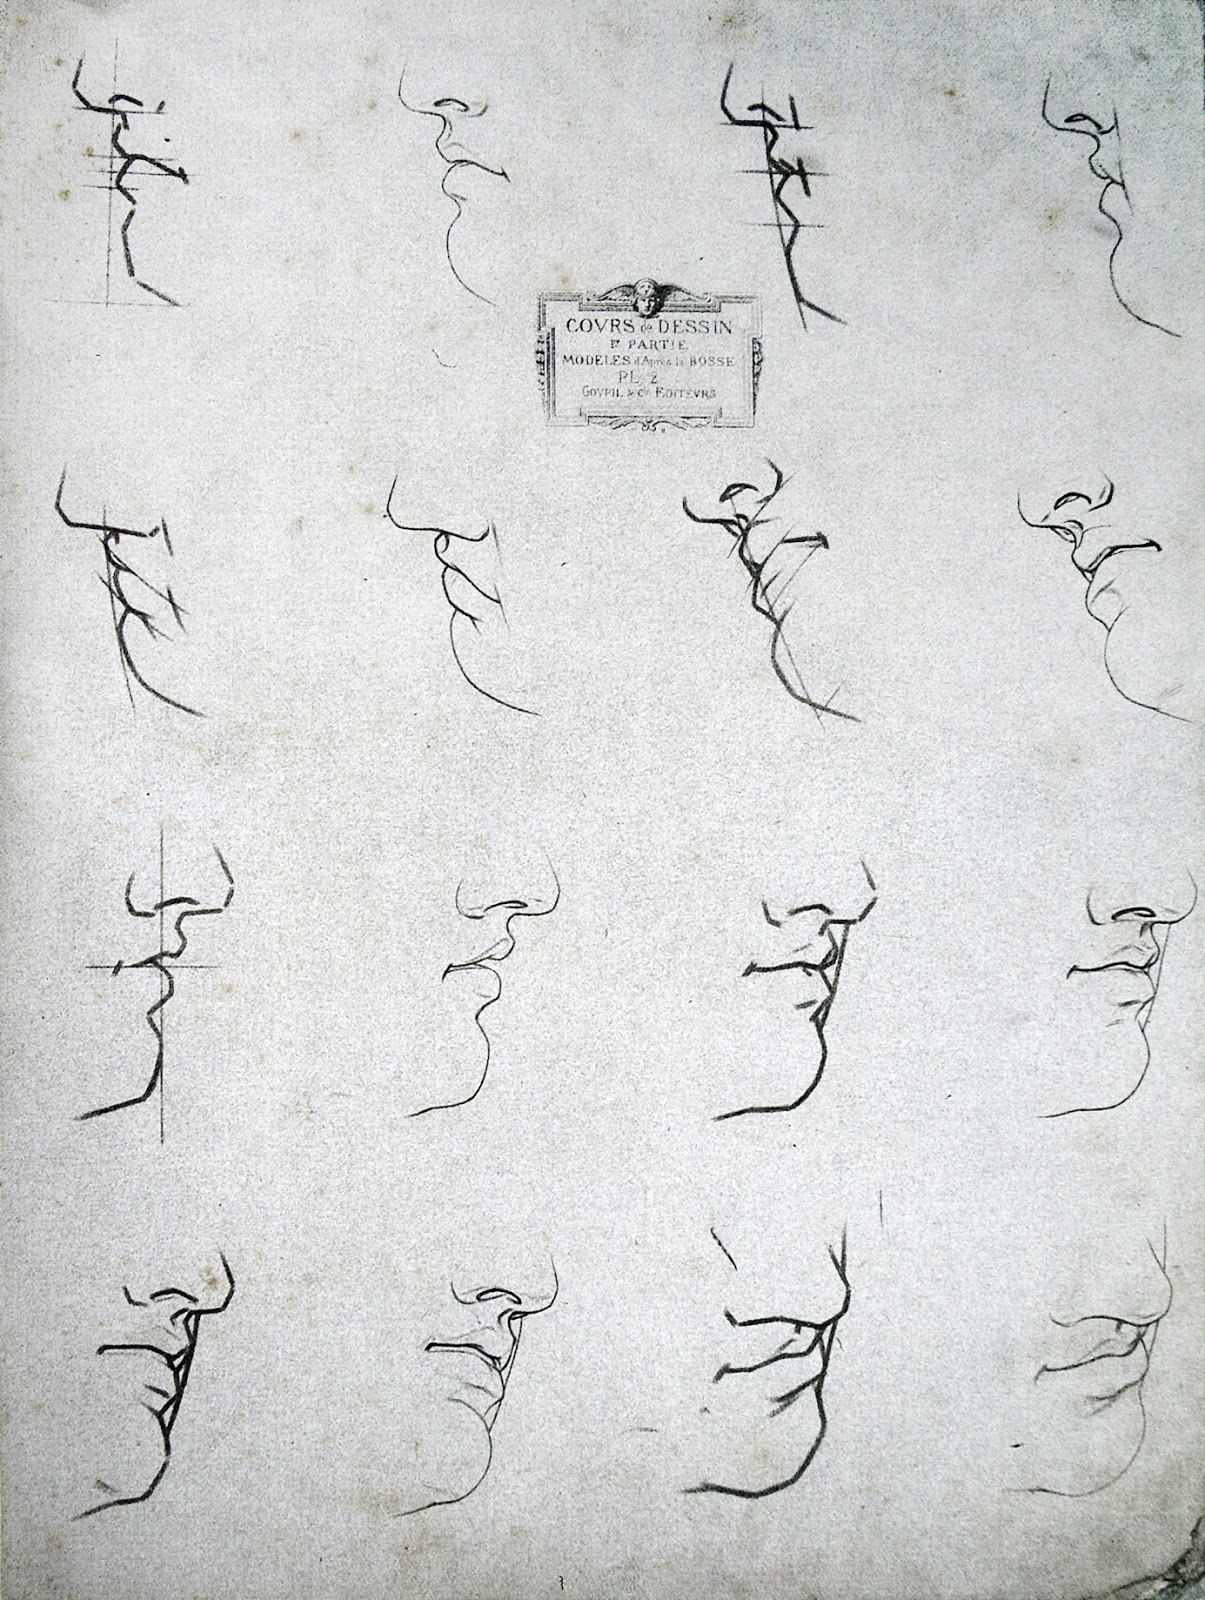 COVRS de DESSIN
Iᵉ PARTIE
MODELES d'Après la BOSSE
PL. 2
GOVPIL & Cᵉ EDITEVRS